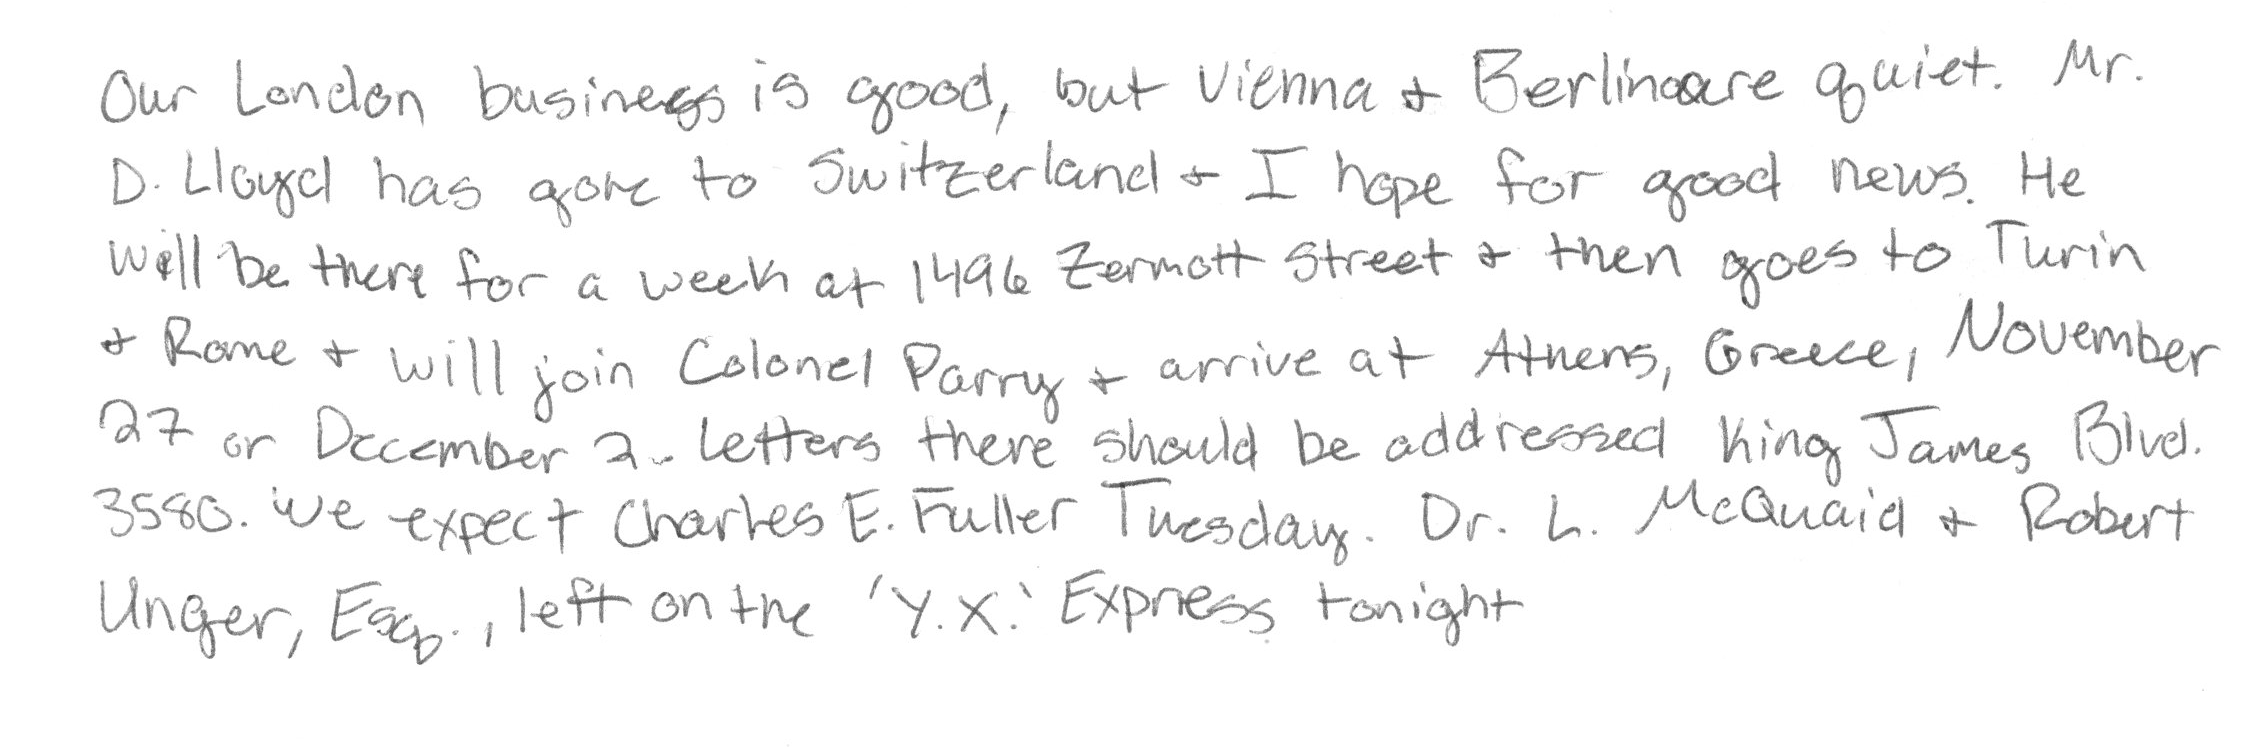 Our London business is good, but Vienna + Berlin are quiet. Mr.
D. Lloyd has gone to Switzerland + I hope for good news. He
will be there for a week at 1496 Zermott Street + then goes to Turin
+ Rome + will join Colonel Parry + arrive at Athens, Greece, November
27 or December 2. Letters there should be addressed King James Blvd.
3580. We expect Charles E. Fuller Tuesday. Dr. L. McQuaid + Robert
Unger, Esq., left on the 'Y.X.' Express tonight